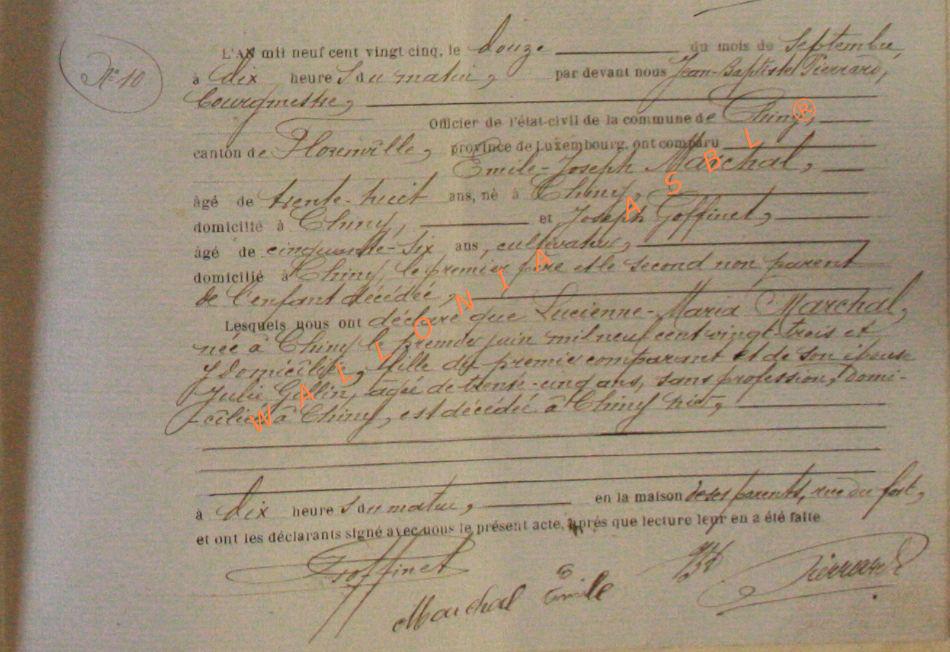 N° 10
L'AN mil neuf cent vingt cinq, le douze du mois de Septembre,
à dix heures du matin, par devant nous Jean-Baptiste Pierrard,
bourgmestre,
Officier de l'état-civil de la commune de Chiny,
canton de Florenville, province de Luxembourg, ont comparu
Emile-Joseph Marchal,
âgé de trente-huit ans, né à Chiny,
domicilié à Chiny, et Joseph Goffinet,
âgé de cinquante-six ans, cultivateur,
domicilié à Chiny, le premier père et le second non parent
de l'enfant décédée,
Lesquels nous ont déclaré que Lucienne-Maria Marchal,
née à Chiny le premier juin mil neuf cent vingt trois et
y domiciliée, fille du premier comparant et de son épouse
Julie Gollin, âgée de trente-un ans, sans profession, domi-
-ciliée à Chiny, est décédée à Chiny
à dix heures du matin, en la maison de ses parents, rue du fort,
et ont les déclarants signé avec nous le présent acte, après que lecture leur en a été faite
Goffinet
Marchal Emile
Pierrard
WALLONIA ASBL ®